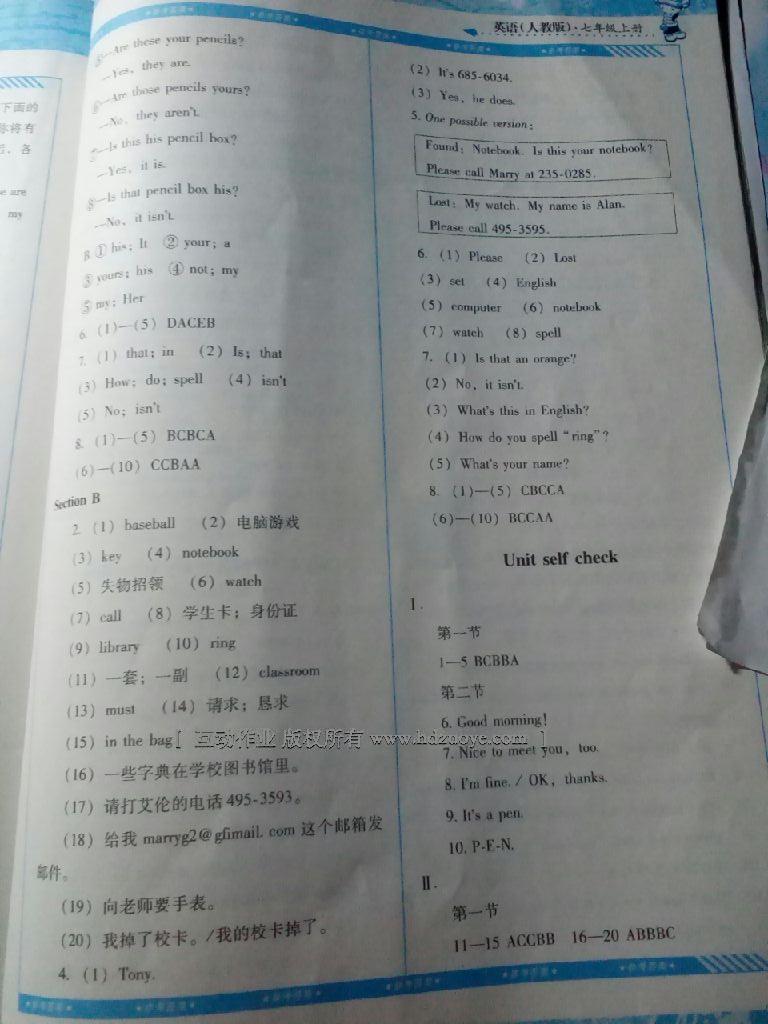 英语(人教版)·七年级上册
下面的
你将有
各
e are
my
⑤—Are these your pencils?
—Yes, they are.
⑥—Are those pencils yours?
—No, they aren't.
—Is this his pencil box?
—Yes, it is.
⑧—Is that pencil box his?
—No, it isn't.
B ① his; It ② your; a
③ yours; his ④ not; my
⑤ my; Her
6. (1)—(5) DACEB
7. (1) that; in (2) Is; that
(3) How; do; spell (4) isn't
(5) No; isn't
8. (1)—(5) BCBCA
(6)—(10) CCBAA
Section B
2. (1) baseball (2) 电脑游戏
(3) key (4) notebook
(5) 失物招领 (6) watch
(7) call (8) 学生卡；身份证
(9) library (10) ring
(11) 一套；一副 (12) classroom
(13) must (14) 请求；恳求
(15) in the bag
(16) 一些字典在学校图书馆里。
(17) 请打艾伦的电话 495-3593。
(18) 给我 marryg2@gfimail. com 这个邮箱发
邮件。
(19) 向老师要手表。
(20) 我掉了校卡。/我的校卡掉了。
4. (1) Tony.
(2) It's 685-6034.
(3) Yes, he does.
5. One possible version:
Found: Notebook. Is this your notebook?
Please call Marry at 235-0285.
Lost: My watch. My name is Alan.
Please call 495-3595.
6. (1) Please (2) Lost
(3) set (4) English
(5) computer (6) notebook
(7) watch (8) spell
7. (1) Is that an orange?
(2) No, it isn't.
(3) What's this in English?
(4) How do you spell "ring"?
(5) What's your name?
8. (1)—(5) CBCCA
(6)—(10) BCCAA
Unit self check
Ⅰ.
第一节
1—5 BCBBA
第二节
6. Good morning!
7. Nice to meet you, too.
8. I'm fine. / OK, thanks.
9. It's a pen.
10. P-E-N.
Ⅱ.
第一节
11—15 ACCBB 16—20 ABBBC
[ 互动作业 版权所有 www.hdzuoye.com ]